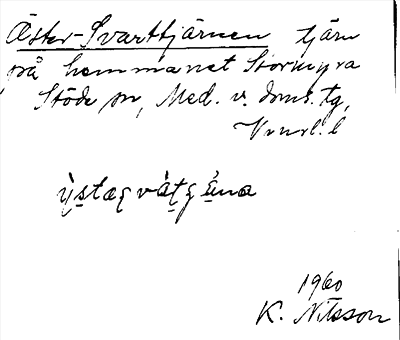 Öster-Svarttjärnen tjärn
på hemmanet Stormyra
Stöde sn, Med. v. doms. tg,
Vnrl. l
1960
K. Nilsson